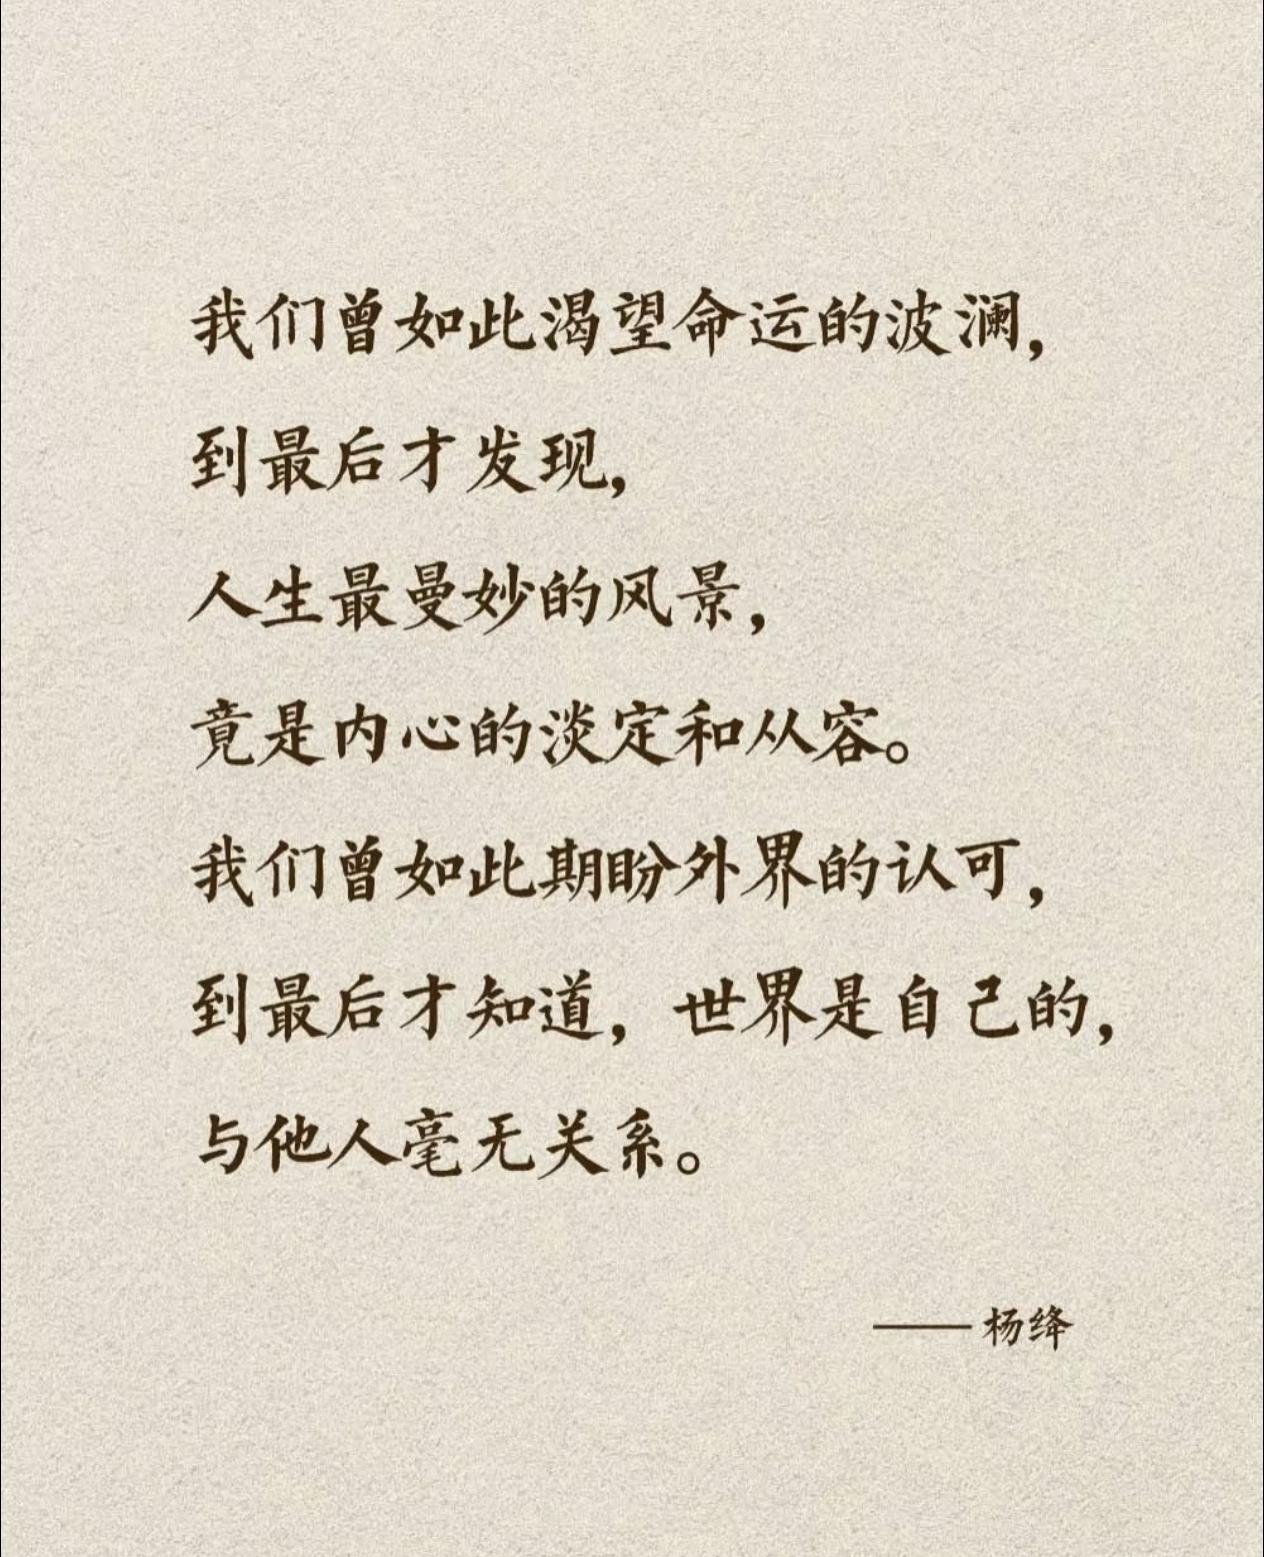 我们曾如此渴望命运的波澜，
到最后才发现，
人生最曼妙的风景，
竟是内心的淡定和从容。
我们曾如此期盼外界的认可，
到最后才知道，世界是自己的，
与他人毫无关系。
——杨绛